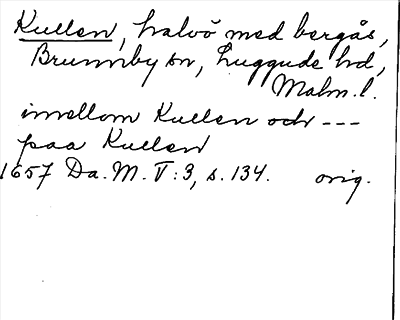 Kullen, halvö med bergås,
Brunnby sn, Luggude hd,
Malm.l.
imellom Kullen och ---
paa Kullen
1657 Da. M. V:3, s. 134. orig.